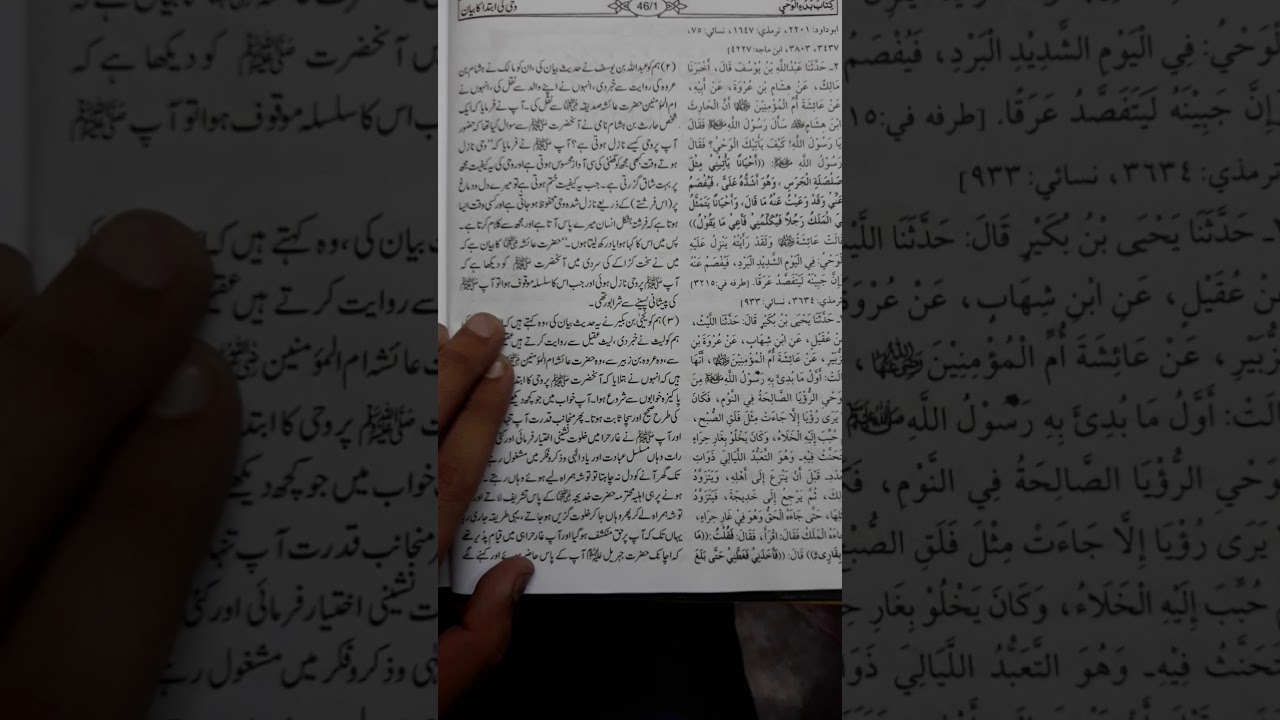 كِتَابُ بَدْءِ الْوَحْيِ
46/1
وحی کی ابتدا کا بیان
ابوداود: ۲۲۰۱، ترمذي: ۱۶۴۷، نسائي: ۷۵،
۳۴۳۷، ۳۸۰۳، ابن ماجه: ۴۲۲۷]
۲۔ حَدَّثَنَا عَبْدُاللَّهِ بْنُ يُوْسُفَ قَالَ، أَخْبَرَنَا
مَالِكٌ، عَنْ هِشَامِ بْنِ عُرْوَةَ، عَنْ أَبِيْهِ،
عَنْ عَائِشَةَ أُمِّ الْمُؤْمِنِيْنَ أَنَّ الْحَارِثَ
ابْنَ هِشَامٍ سَأَلَ رَسُوْلَ اللَّهِ ﷺ فَقَالَ
يَا رَسُوْلَ اللَّهِ! كَيْفَ يَأْتِيْكَ الْوَحْيُ؟ فَقَالَ
رَسُوْلُ اللَّهِ ﷺ: ((أَحْيَانًا يَأْتِيْنِي مِثْلَ
صَلْصَلَةِ الْجَرَسِ، وَهُوَ أَشَدُّهُ عَلَيَّ، فَيُفْصَمُ
عَنِّي وَقَدْ وَعَيْتُ عَنْهُ مَا قَالَ، وَأَحْيَانًا يَتَمَثَّلُ
لِيَ الْمَلَكُ رَجُلًا فَيُكَلِّمُنِي فَأَعِي مَا يَقُوْلُ))
قَالَتْ عَائِشَةُ وَلَقَدْ رَأَيْتُهُ يَنْزِلُ عَلَيْهِ
الْوَحْيُ: فِي الْيَوْمِ الشَّدِيْدِ الْبَرْدِ، فَيُفْصَمُ عَنْهُ
وَإِنَّ جَبِيْنَهُ لَيَتَفَصَّدُ عَرَقًا. [طرفه في: ۳۲۱۵]
ترمذي: ۳۶۳۴، نسائي: ۹۳۳]
حَدَّثَنَا يَحْيَى بْنُ بُكَيْرٍ قَالَ: حَدَّثَنَا اللَّيْثُ،
عَنْ عُقَيْلٍ، عَنِ ابْنِ شِهَابٍ، عَنْ عُرْوَةَ بْنِ
الزُّبَيْرِ، عَنْ عَائِشَةَ أُمِّ الْمُؤْمِنِيْنَ، أَنَّهَا
قَالَتْ: أَوَّلُ مَا بُدِئَ بِهِ رَسُوْلُ اللَّهِ ﷺ مِنَ
الْوَحْيِ الرُّؤْيَا الصَّالِحَةُ فِي النَّوْمِ، فَكَانَ
لَا يَرَى رُؤْيَا إِلَّا جَاءَتْ مِثْلَ فَلَقِ الصُّبْحِ،
ثُمَّ حُبِّبَ إِلَيْهِ الْخَلَاءُ، وَكَانَ يَخْلُوْ بِغَارِ حِرَاءٍ
فَيَتَحَنَّثُ فِيْهِ۔ وَهُوَ التَّعَبُّدُ اللَّيَالِيَ ذَوَاتِ
الْعَدَدِ۔ قَبْلَ أَنْ يَنْزِعَ إِلَى أَهْلِهِ، وَيَتَزَوَّدُ
لِذَلِكَ، ثُمَّ يَرْجِعُ إِلَى خَدِيْجَةَ، فَيَتَزَوَّدُ
لِمِثْلِهَا، حَتَّى جَاءَهُ الْحَقُّ وَهُوَ فِي غَارِ حِرَاءٍ،
فَجَاءَهُ الْمَلَكُ فَقَالَ: اقْرَأْ، فَقَالَ: فَقُلْتُ: ((مَا
أَنَا بِقَارِئٍ)) قَالَ: ((فَأَخَذَنِيْ فَغَطَّنِيْ حَتَّى بَلَغَ
(۲) ہم کو عبداللہ بن یوسف نے حدیث بیان کی، ان کو مالک نے ہشام بن
عروہ کی روایت سے خبر دی، انہوں نے اپنے والد سے نقل کی، انہوں نے
ام المؤمنین حضرت عائشہ صدیقہ سے نقل کی۔ آپ نے فرمایا کہ ایک
شخص حارث بن ہشام نامی نے آنحضرت ﷺ سے سوال کیا تھا کہ حضور
آپ پر وحی کیسے نازل ہوتی ہے؟ آپ ﷺ نے فرمایا کہ ”وحی نازل
ہوتے وقت کبھی مجھ کو گھنٹی کی سی آواز محسوس ہوتی ہے اور وحی کی یہ کیفیت مجھ
پر بہت شاق گزرتی ہے۔ جب یہ کیفیت ختم ہوتی ہے تو میرے دل و دماغ
پر (اس فرشتے) کے ذریعے نازل شدہ وحی محفوظ ہو جاتی ہے اور کسی وقت ایسا
ہوتا ہے کہ فرشتہ بشکل انسان میرے پاس آتا ہے اور مجھ سے کلام کرتا ہے۔
پس میں اس کا کہا ہوا یاد رکھ لیتا ہوں۔“ حضرت عائشہ کا بیان ہے کہ
میں نے سخت کڑاکے کی سردی میں آنحضرت ﷺ کو دیکھا ہے کہ
آپ ﷺ پر وحی نازل ہوئی اور جب اس کا سلسلہ موقوف ہوا تو آپ ﷺ
کی پیشانی پسینے سے شرابور تھی۔
(۳) ہم کو یحییٰ بن بکیر نے یہ حدیث بیان کی، وہ کہتے ہیں کہ
ہم کو لیث نے خبر دی، لیث عقیل سے روایت کرتے ہیں
سے، وہ عروہ بن زبیر سے، وہ حضرت عائشہ ام المؤمنین
ہیں کہ انہوں نے بتلایا کہ آنحضرت ﷺ پر وحی کا ابتدا
پاکیزہ خوابوں سے شروع ہوا۔ آپ خواب میں جو کچھ دیکھتے
کی طرح صحیح اور سچا ثابت ہوتا۔ پھر منجانب قدرت آپ
اور آپ ﷺ نے غار حرا میں خلوت نشینی اختیار فرمائی اور
رات وہاں مسلسل عبادت اور یاد الٰہی و ذکر و فکر میں مشغول رہتے
تک گھر آنے کو دل نہ چاہتا تو توشہ ہمراہ لیے ہوئے وہاں رہتے۔
ہونے پر ہی اہلیہ محترمہ حضرت خدیجہ کے پاس تشریف لاتے اور
توشہ ہمراہ لے کر پھر وہاں جا کر خلوت گزیں ہو جاتے، یہی طریقہ جاری رہا
یہاں تک کہ آپ پر حق منکشف ہو گیا اور آپ غار حرا ہی میں قیام پذیر تھے
کہ اچانک حضرت جبریل آپ کے پاس حاضر ہوئے اور کہنے لگے